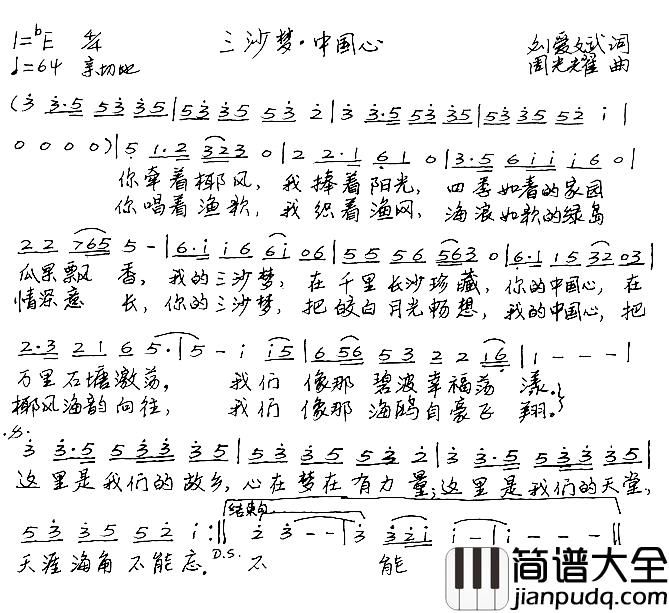 1=♭E 4/4 三沙梦·中国心 刘爱斌词
♩=64 亲切地 周光耀曲
(3 3·5 53 35|53 35 53 2|3 3·5 53 35|53 35 52 i|
0 0 0 0)|5 1·2 323 0|2 2·1 6 1 0|3·5 6 i i i 6 0|
你牵着椰风，我捧着阳光，四季如春的家园
你唱着渔歌，我织着渔网，海浪如歌的绿岛
2 2 765 5 -|6·i i 6 6i 06|5 5 5 6 563 0|6·1 1 5 32 03|
瓜果飘香，我的三沙梦，在千里长沙珍藏，你的中国心，在
情深意长，你的三沙梦，把皎白月光畅想，我的中国心，把
2·3 2 1 6 5·|5 - i i5|6 56 5 3 2 2 i6|1 - - -|
万里石塘激荡。我们像那碧波幸福荡漾。}
椰风海韵向往，我们像那海鸥自豪飞翔。}
3 3·5 53 3 35|53 35 53 2|3 3·5 53 3 35|
这里是我们的故乡，心在梦在有力量；这里是我们的天堂，
结束句
53 35 52 i :‖ 2 3 - -|3 32i i -|i - - -‖
天涯海角不能忘。D.S. 不能
简谱大全
jianpudq.com